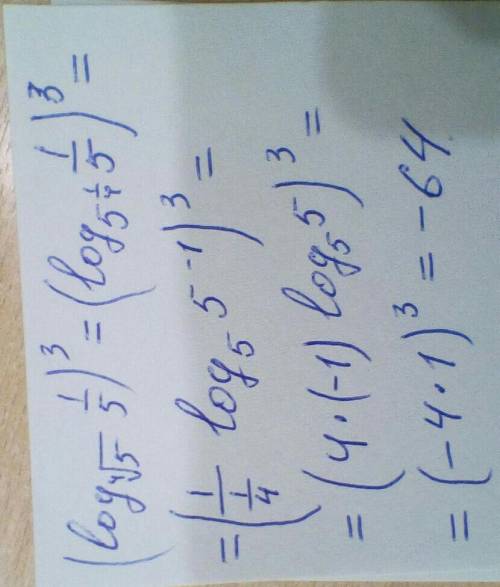 (log_{\sqrt[4]{5}} \frac{1}{5})^3 = (log_{5^{\frac{1}{4}}} \frac{1}{5})^3 =
= (\frac{1}{\frac{1}{4}} log_5 5^{-1})^3 =
= (4 · (-1) log_5 5)^3 =
= (-4 · 1)^3 = -64.